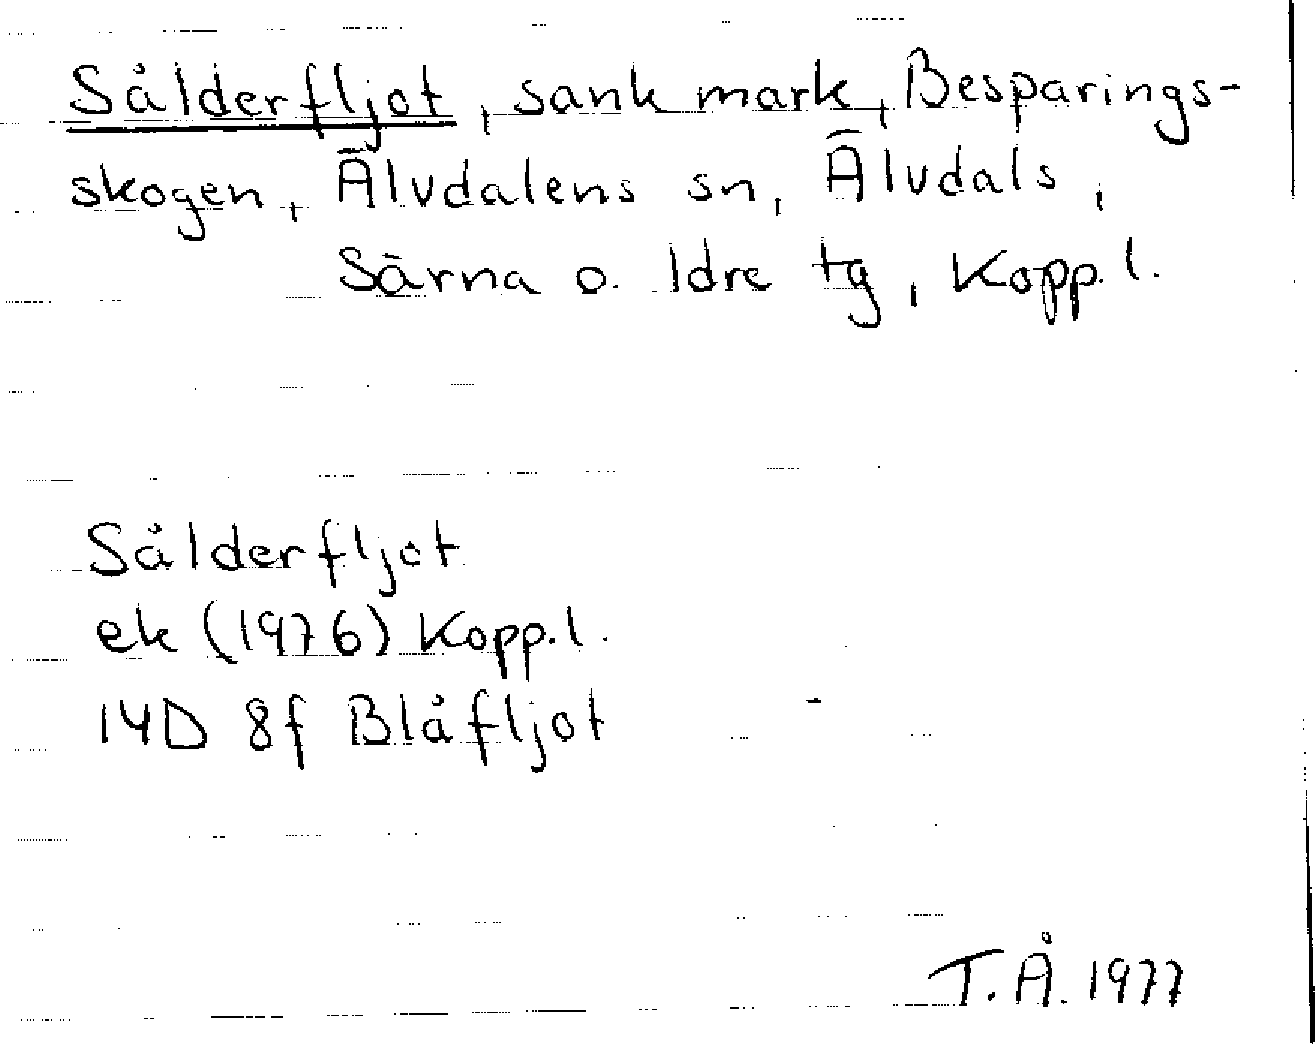 Sålderfljot, sank mark, Besparings-
skogen, Älvdalens sn, Älvdals,
Särna o. Idre tg, Kopp. l.
Sålderfljot
ek (1976) Kopp. l.
14D 8f Blåfljot
T.Å. 1977